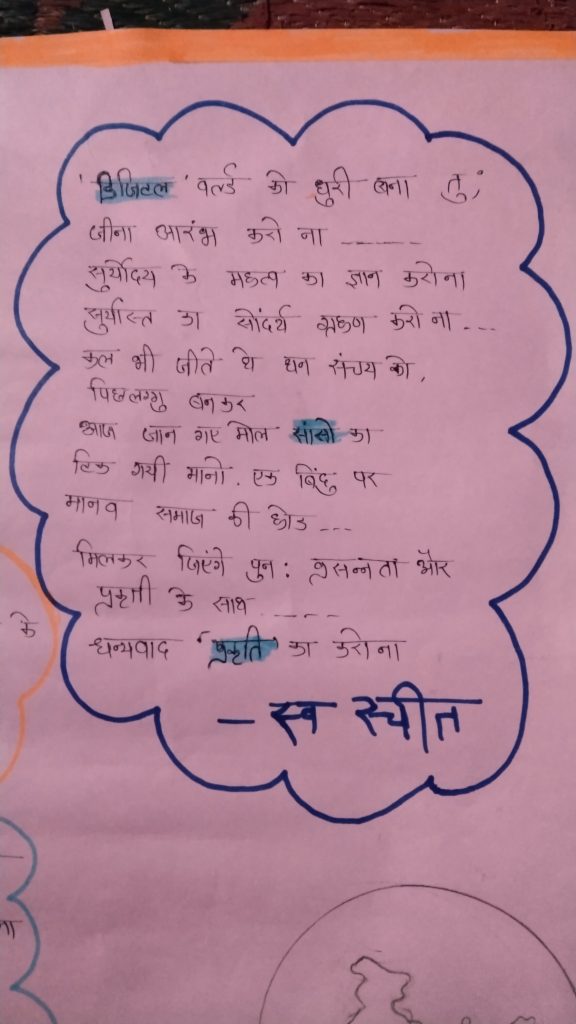 'डिजिटल' वर्ल्ड को धुरी बना तु,
जीना आरंभ करो ना -----
सुर्योदय के महत्व का ज्ञान करोना
सुर्यास्त का सौंदर्य ग्रहण करो ना ---
कल भी जीते थे धन संचय को,
पिछलग्गु बनकर
आज जान गए मोल सांसो का
टिक गयी मानो. एक बिंदु पर
मानव समाज की होड ---
मिलकर जिएंगे पुन: प्रसन्नता और
प्रकृती के साथ -----
धन्यवाद 'प्रकृति' का करोना
- स्व रचीत
के
ना